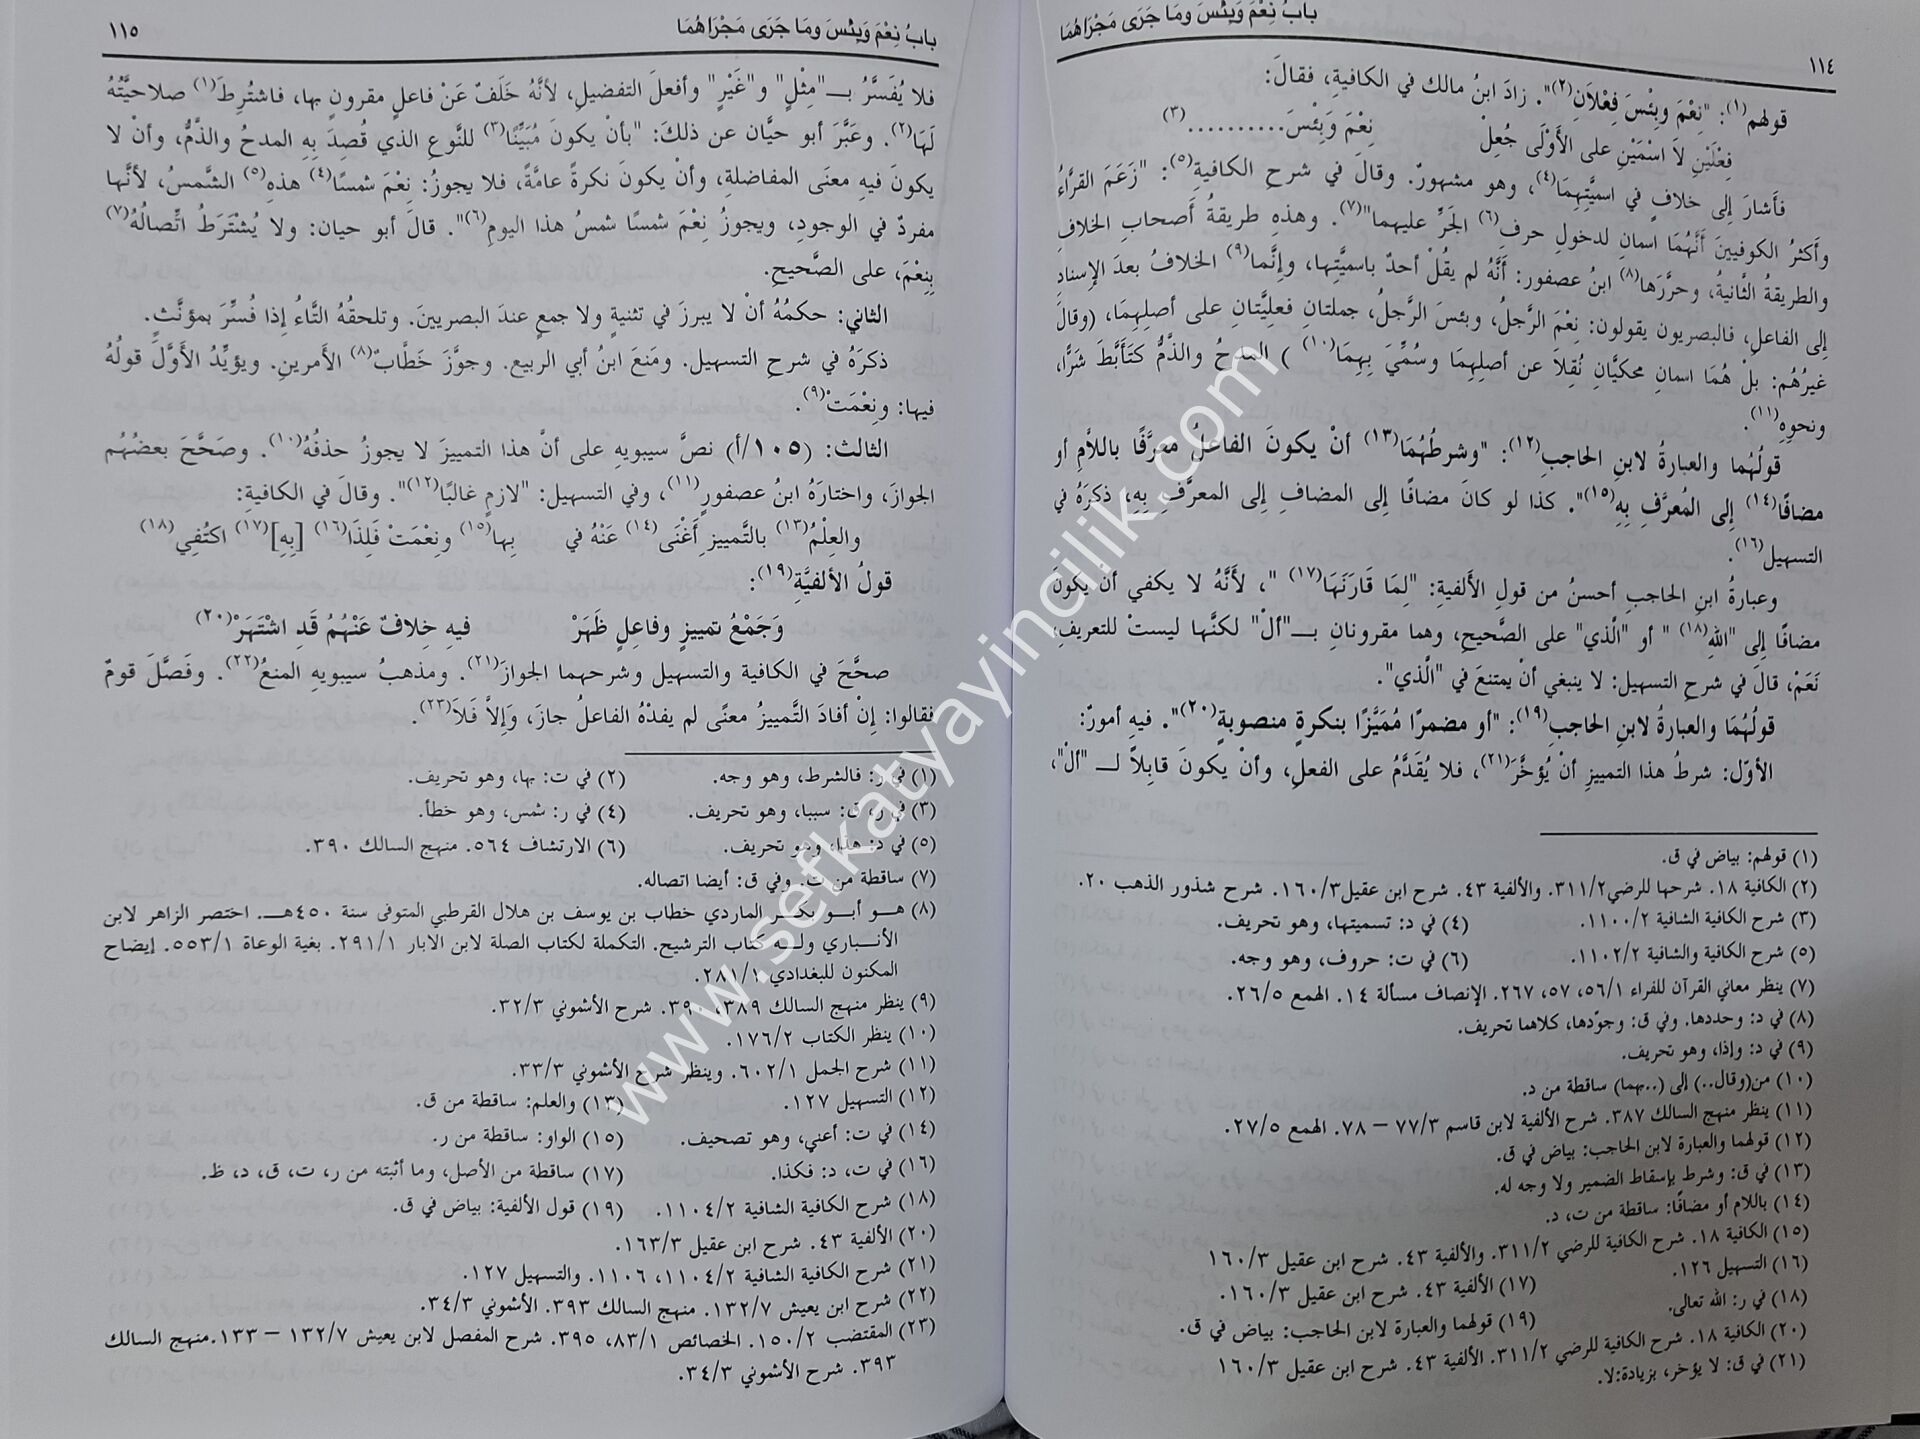 باب نِعْمَ وَبِئْسَ وما جَرَى مَجْرَاهُمَا
١١٤
قولهم(١): "نِعْمَ وبِئْسَ فِعْلاَنِ(٢)". زادَ ابنُ مالك في الكافيةِ، فقالَ:
فِعْلَيْنِ لاَ اسْمَيْنِ على الأَوْلَى جُعِلْ نِعْمَ وَبِئْسَ..........(٣)
فأشارَ إلى خلافٍ في اسميَّتِهِمَا(٤)، وهو مشهورٌ. وقالَ في شرحِ الكافيةِ(٥): "زَعَمَ الفرَّاءُ
وأكثرُ الكوفيينَ أنَّهُمَا اسمانِ لدخولِ حرفِ(٦) الجَرِّ عليهما"(٧). وهذهِ طريقةُ أصحابِ الخلافِ
والطريقةُ الثَّانيةُ، وحرَّرَها(٨) ابنُ عصفور: أنَّهُ لم يقُلْ أحدٌ باسميَّتِها، وإنَّما(٩) الخلافُ بعدَ الإسنادِ
إلى الفاعلِ، فالبصريون يقولون: نِعْمَ الرَّجلُ، وبئسَ الرَّجلُ، جملتانِ فعليَّتانِ على أصلِهِمَا، (وقالَ
غيرُهُم: بلْ هُمَا اسمانِ محكيَّانِ نُقِلاَ عن أصلِهِمَا وسُمِّيَ بِهِمَا(١٠) ) المدحُ والذَّمُّ كَتَأَبَّطَ شَرًّا،
ونحوِهِ(١١).
قولُهُما والعبارةُ لابنِ الحاجبِ(١٢): "وشرطُهُمَا(١٣) أنْ يكونَ الفاعلُ معرَّفًا باللاَّمِ أو
مضافًا(١٤) إلى المُعرَّفِ بِهِ(١٥)". كذا لو كانَ مضافًا إلى المضافِ إلى المعرَّفِ بِهِ، ذكرَهُ في
التسهيل(١٦).
وعبارةُ ابنِ الحاجبِ أحسنُ من قولِ الألفيةِ: "لِمَا قَارَنَهَا(١٧) "، لأَنَّهُ لا يكفي أن يكونَ
مضافًا إلى "اللهِ(١٨) " أو "الَّذي" على الصَّحيحِ، وهما مقرونانِ بــ"أل" لكنَّها ليستْ للتعريفِ،
نَعَمْ، قالَ في شرحِ التسهيل: لا ينبغي أنْ يمتنعَ في "الَّذي".
قولُهُمَا والعبارةُ لابنِ الحاجبِ(١٩): "أو مضمرًا مُمَيَّزًا بنكرةٍ منصوبةٍ(٢٠)". فيهِ أمورٌ:
الأوّل: شرطُ هذا التمييزِ أنْ يُؤخَّرَ(٢١)، فلا يُقَدَّمُ على الفعلِ، وأنْ يكونَ قابلاً لــ "ألْ"،
(١) قولهم: بياض في ق.
(٢) الكافية ١٨. شرحها للرضي ٣١١/٢. والألفية ٤٣. شرح ابن عقيل ١٦٠/٣. شرح شذور الذهب ٢٠.
(٣) شرح الكافية الشافية ١١٠٠/٢. (٤) في د: تسميتها، وهو تحريف.
(٥) شرح الكافية والشافية ١١٠٢/٢. (٦) في ت: حروف، وهو وجه.
(٧) ينظر معاني القرآن للفراء ٥٦/١، ٥٧، ٢٦٧. الإنصاف مسألة ١٤. الهمع ٢٦/٥.
(٨) في د: وحددها. وفي ق: وجوّدها، كلاهما تحريف.
(٩) في د: وإذا، وهو تحريف.
(١٠) من(وقال..) إلى (..بهما) ساقطة من د.
(١١) ينظر منهج السالك ٣٨٧. شرح الألفية لابن قاسم ٧٧/٣ – ٧٨. الهمع ٢٧/٥.
(١٢) قولهما والعبارة لابن الحاجب: بياض في ق.
(١٣) في ق: وشرط بإسقاط الضمير ولا وجه له.
(١٤) باللام أو مضافًا: ساقطة من ت، د.
(١٥) الكافية ١٨. شرح الكافية للرضي ٣١١/٢. والألفية ٤٣. شرح ابن عقيل ١٦٠/٣
(١٦) التسهيل ١٢٦. (١٧) الألفية ٤٣. شرح ابن عقيل ١٦٠/٣.
(١٨) في ر: الله تعالى. (١٩) قولهما والعبارة لابن الحاجب: بياض في ق.
(٢٠) الكافية ١٨. شرح الكافية للرضي ٣١١/٢. الألفية ٤٣. شرح ابن عقيل ١٦٠/٣
(٢١) في ق: لا يؤخر، بزيادة:لا.
باب نِعْمَ وَبِئْسَ وما جَرَى مَجْرَاهُمَا
١١٥
فلا يُفَسَّرُ بــ"مِثْلٍ" و"غَيْرٍ" وأفعلَ التفضيلِ، لأنَّهُ خَلَفٌ عَنْ فاعلٍ مقرونٍ بها، فاشتُرِطَ(١) صلاحيَّتُهُ
لَهَا(٢). وعبَّرَ أبو حيَّان عن ذلكَ: "بأنْ يكونَ مُبَيِّنًا(٣) للنَّوعِ الذي قُصِدَ بِهِ المدحُ والذَّمُّ، وأنْ لا
يكونَ فيهِ معنَى المفاضلةِ، وأنْ يكونَ نكرةً عامَّةً، فلا يجوزُ: نِعْمَ شمسًا(٤) هذهِ(٥) الشَّمسُ، لأنَّها
مفردٌ في الوجودِ، ويجوزُ نِعْمَ شمسًا شمسُ هذا اليومِ(٦)". قالَ أبو حيان: ولا يُشْتَرَطُ اتِّصالُهُ(٧)
بِنِعْمَ، على الصَّحيحِ.
الثاني: حكمُهُ أنْ لا يبرزَ في تثنيةٍ ولا جمعٍ عندَ البصريينَ. وتلحقُهُ التَّاءُ إذا فُسِّرَ بمؤنَّثٍ.
ذكرَهُ في شرحِ التسهيل. ومَنعَ ابنُ أبي الربيع. وجوَّزَ خَطَّابٌ(٨) الأَمرينِ. ويؤيِّدُ الأَوَّلَ قولُهُ
فيها: ونِعْمَتْ(٩).
الثالث: (١٠٥/أ) نصَّ سيبويهِ على أنَّ هذا التمييزَ لا يجوزُ حذفُهُ(١٠). وصَحَّحَ بعضُهُم
الجوازَ، واختارَهُ ابنُ عصفورٍ(١١)، وفي التسهيل: "لازم غالبًا(١٢)". وقالَ في الكافيةِ:
والعِلْمُ(١٣) بالتَّمييزِ أَغْنَى(١٤) عَنْهُ في بِها(١٥) ونِعْمَتْ فَلِذَا(١٦) [بِهِ](١٧) اكتُفِي(١٨)
قولُ الألفيَّةِ(١٩):
وَجَمْعُ تمييزٍ وفاعِلٍ ظَهَرْ فيهِ خِلافٌ عَنْهُمُ قَدِ اشْتَهَرْ(٢٠)
صحَّحَ في الكافية والتسهيل وشرحهما الجوازَ(٢١). ومذهبُ سيبويهِ المنعُ(٢٢). وفَصَّلَ قومٌ
فقالوا: إنْ أفادَ التَّمييزُ معنًى لم يفدْهُ الفاعلُ جازَ، وَإِلاَّ فَلاَ(٢٣).
(١) في ر: فالشرط، وهو وجه. (٢) في ت: بها، وهو تحريف.
(٣) في ر، ق: سببا، وهو تحريف. (٤) في ر: شمس، وهو خطأ.
(٥) في د: هذا، وهو تحريف. (٦) الارتشاف ٥٦٤. منهج السالك ٣٩٠.
(٧) ساقطة من ت. وفي ق: أيضا اتصاله.
(٨) هــو أبــو بكــر الماردي خطاب بن يوسف بن هلال القرطبي المتوفى سنة ٤٥٠هــ. اختصر الزاهر لابن
الأنــباري ولــه كتاب الترشيح. التكملة لكتاب الصلة لابن الابار ٢٩١/١. بغية الوعاة ٥٥٣/١. إيضاح
المكنون للبغدادي ٢٨١/١.
(٩) ينظر منهج السالك ٣٨٩، ٣٩٠. شرح الأشموني ٣٢/٣.
(١٠) ينظر الكتاب ١٧٦/٢.
(١١) شرح الجمل ٦٠٢/١. وينظر شرح الأشموني ٣٣/٣.
(١٢) التسهيل ١٢٧. (١٣) والعلم: ساقطة من ق.
(١٤) في ت: أعني، وهو تصحيف. (١٥) الواو: ساقطة من ر.
(١٦) في ت، د: فكذا. (١٧) ساقطة من الأصل، وما أثبته من ر، ت، ق، د، ظ.
(١٨) شرح الكافية الشافية ١١٠٤/٢. (١٩) قول الألفية: بياض في ق.
(٢٠) الألفية ٤٣. شرح ابن عقيل ١٦٣/٣.
(٢١) شرح الكافية الشافية ١١٠٤/٢، ١١٠٦. والتسهيل ١٢٧.
(٢٢) شرح ابن يعيش ١٣٢/٧. منهج السالك ٣٩٣. الأشموني ٣٤/٣.
(٢٣) المقتضب ١٥٠/٢. الخصائص ٨٣/١، ٣٩٥. شرح المفصل لابن يعيش ١٣٢/٧ – ١٣٣.منهج السالك
٣٩٣. شرح الأشموني ٣٤/٣.
www.sefkatyayincilik.com